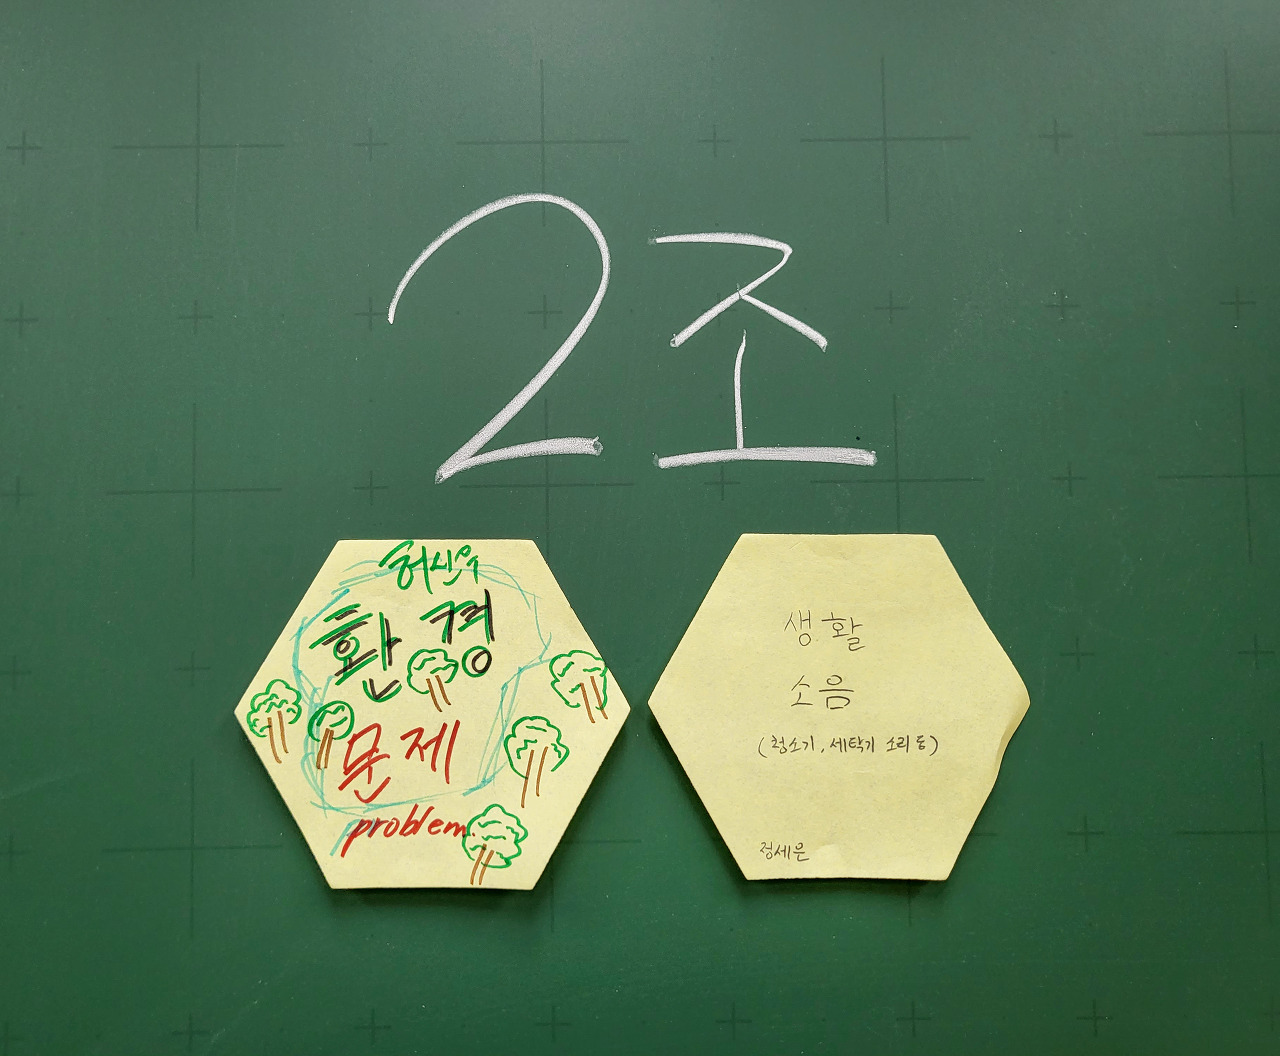 2조
환경
문제
problem
생활
소음
(청소기, 세탁기 소리 등)
정세은